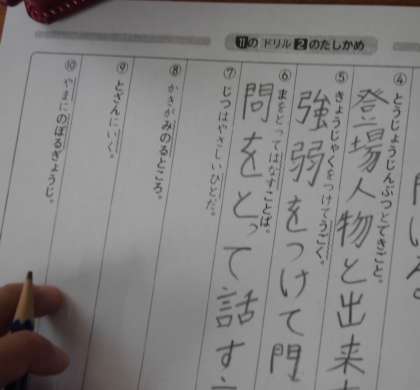 11の ドリル 2 のたしかめ
④ とうじょうじんぶつとできごと。
登場人物と出来
⑤ きょうじゃくをつけてうごく。
強弱をつけて
⑥ まをとってはなすことば。
問をとって話す
⑦ じつはやさしいひとだ。
⑧ かきがみのるところ。
⑨ とざんにいく。
⑩ やまにのぼるぎょうじ。